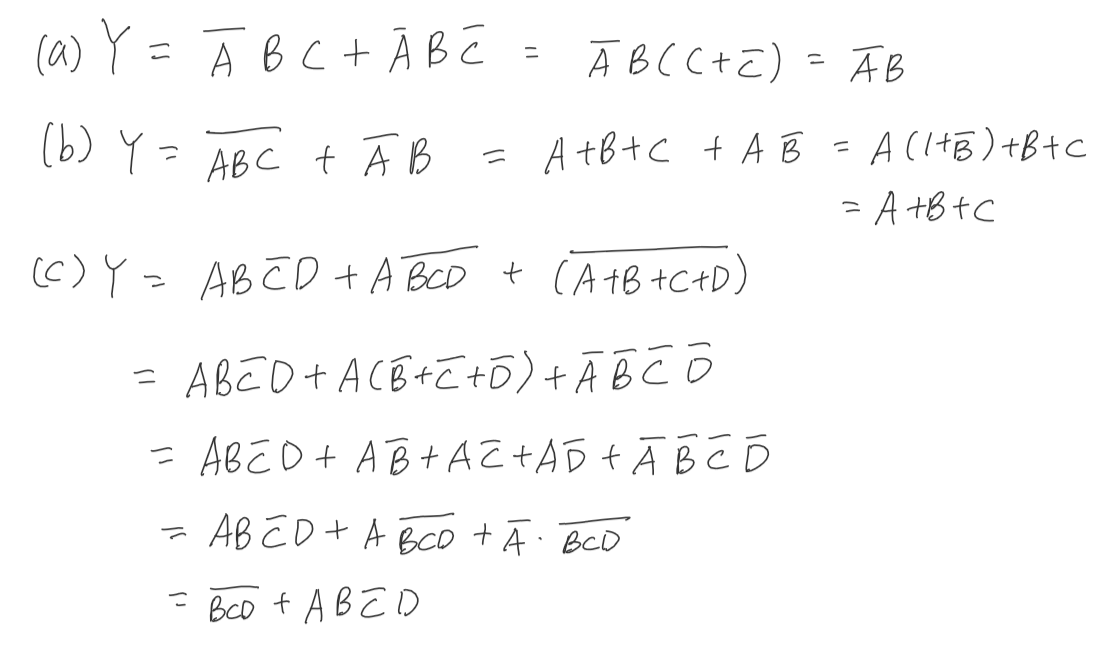 (a) Y = A̅ B C + A̅ B C̅ = A̅ B (C + C̅) = A̅B
(b) Y = \overline{ABC} + A̅ B = A + B + C + A B̅ = A(1+B̅) + B + C
= A + B + C
(c) Y = A B C̅ D + A \overline{BCD} + (\overline{A+B+C+D})
= A B C̅ D + A(B̅ + C̅ + D̅) + A̅ B̅ C̅ D̅
= A B C̅ D + A B̅ + A C̅ + A D̅ + A̅ B̅ C̅ D̅
= A B C̅ D + A \overline{BCD} + A̅ · \overline{BCD}
= \overline{BCD} + A B C̅ D